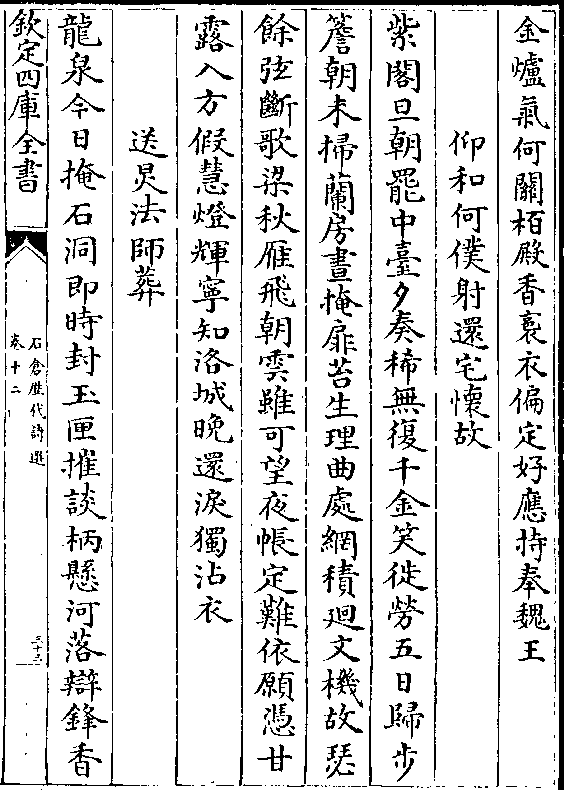 金爐氣何關栢殿香裛衣偏定好應持奉魏王
仰和何僕射還宅懷故
紫閣旦朝罷中臺夕奏稀無復千金笑徒勞五日歸步
簷朝未掃蘭房晝掩扉苔生理曲處網積廻文機故瑟
餘弦斷歌梁秋雁飛朝雲雖可望夜帳定難依願憑甘
露入方假慧燈輝寧知洛城晚還淚獨沾衣
送炅法師葬
龍泉今日掩石洞即時封玉匣摧談柄懸河落辯鋒香
欽定四庫全書
石倉歴代詩選
卷十二
三十三